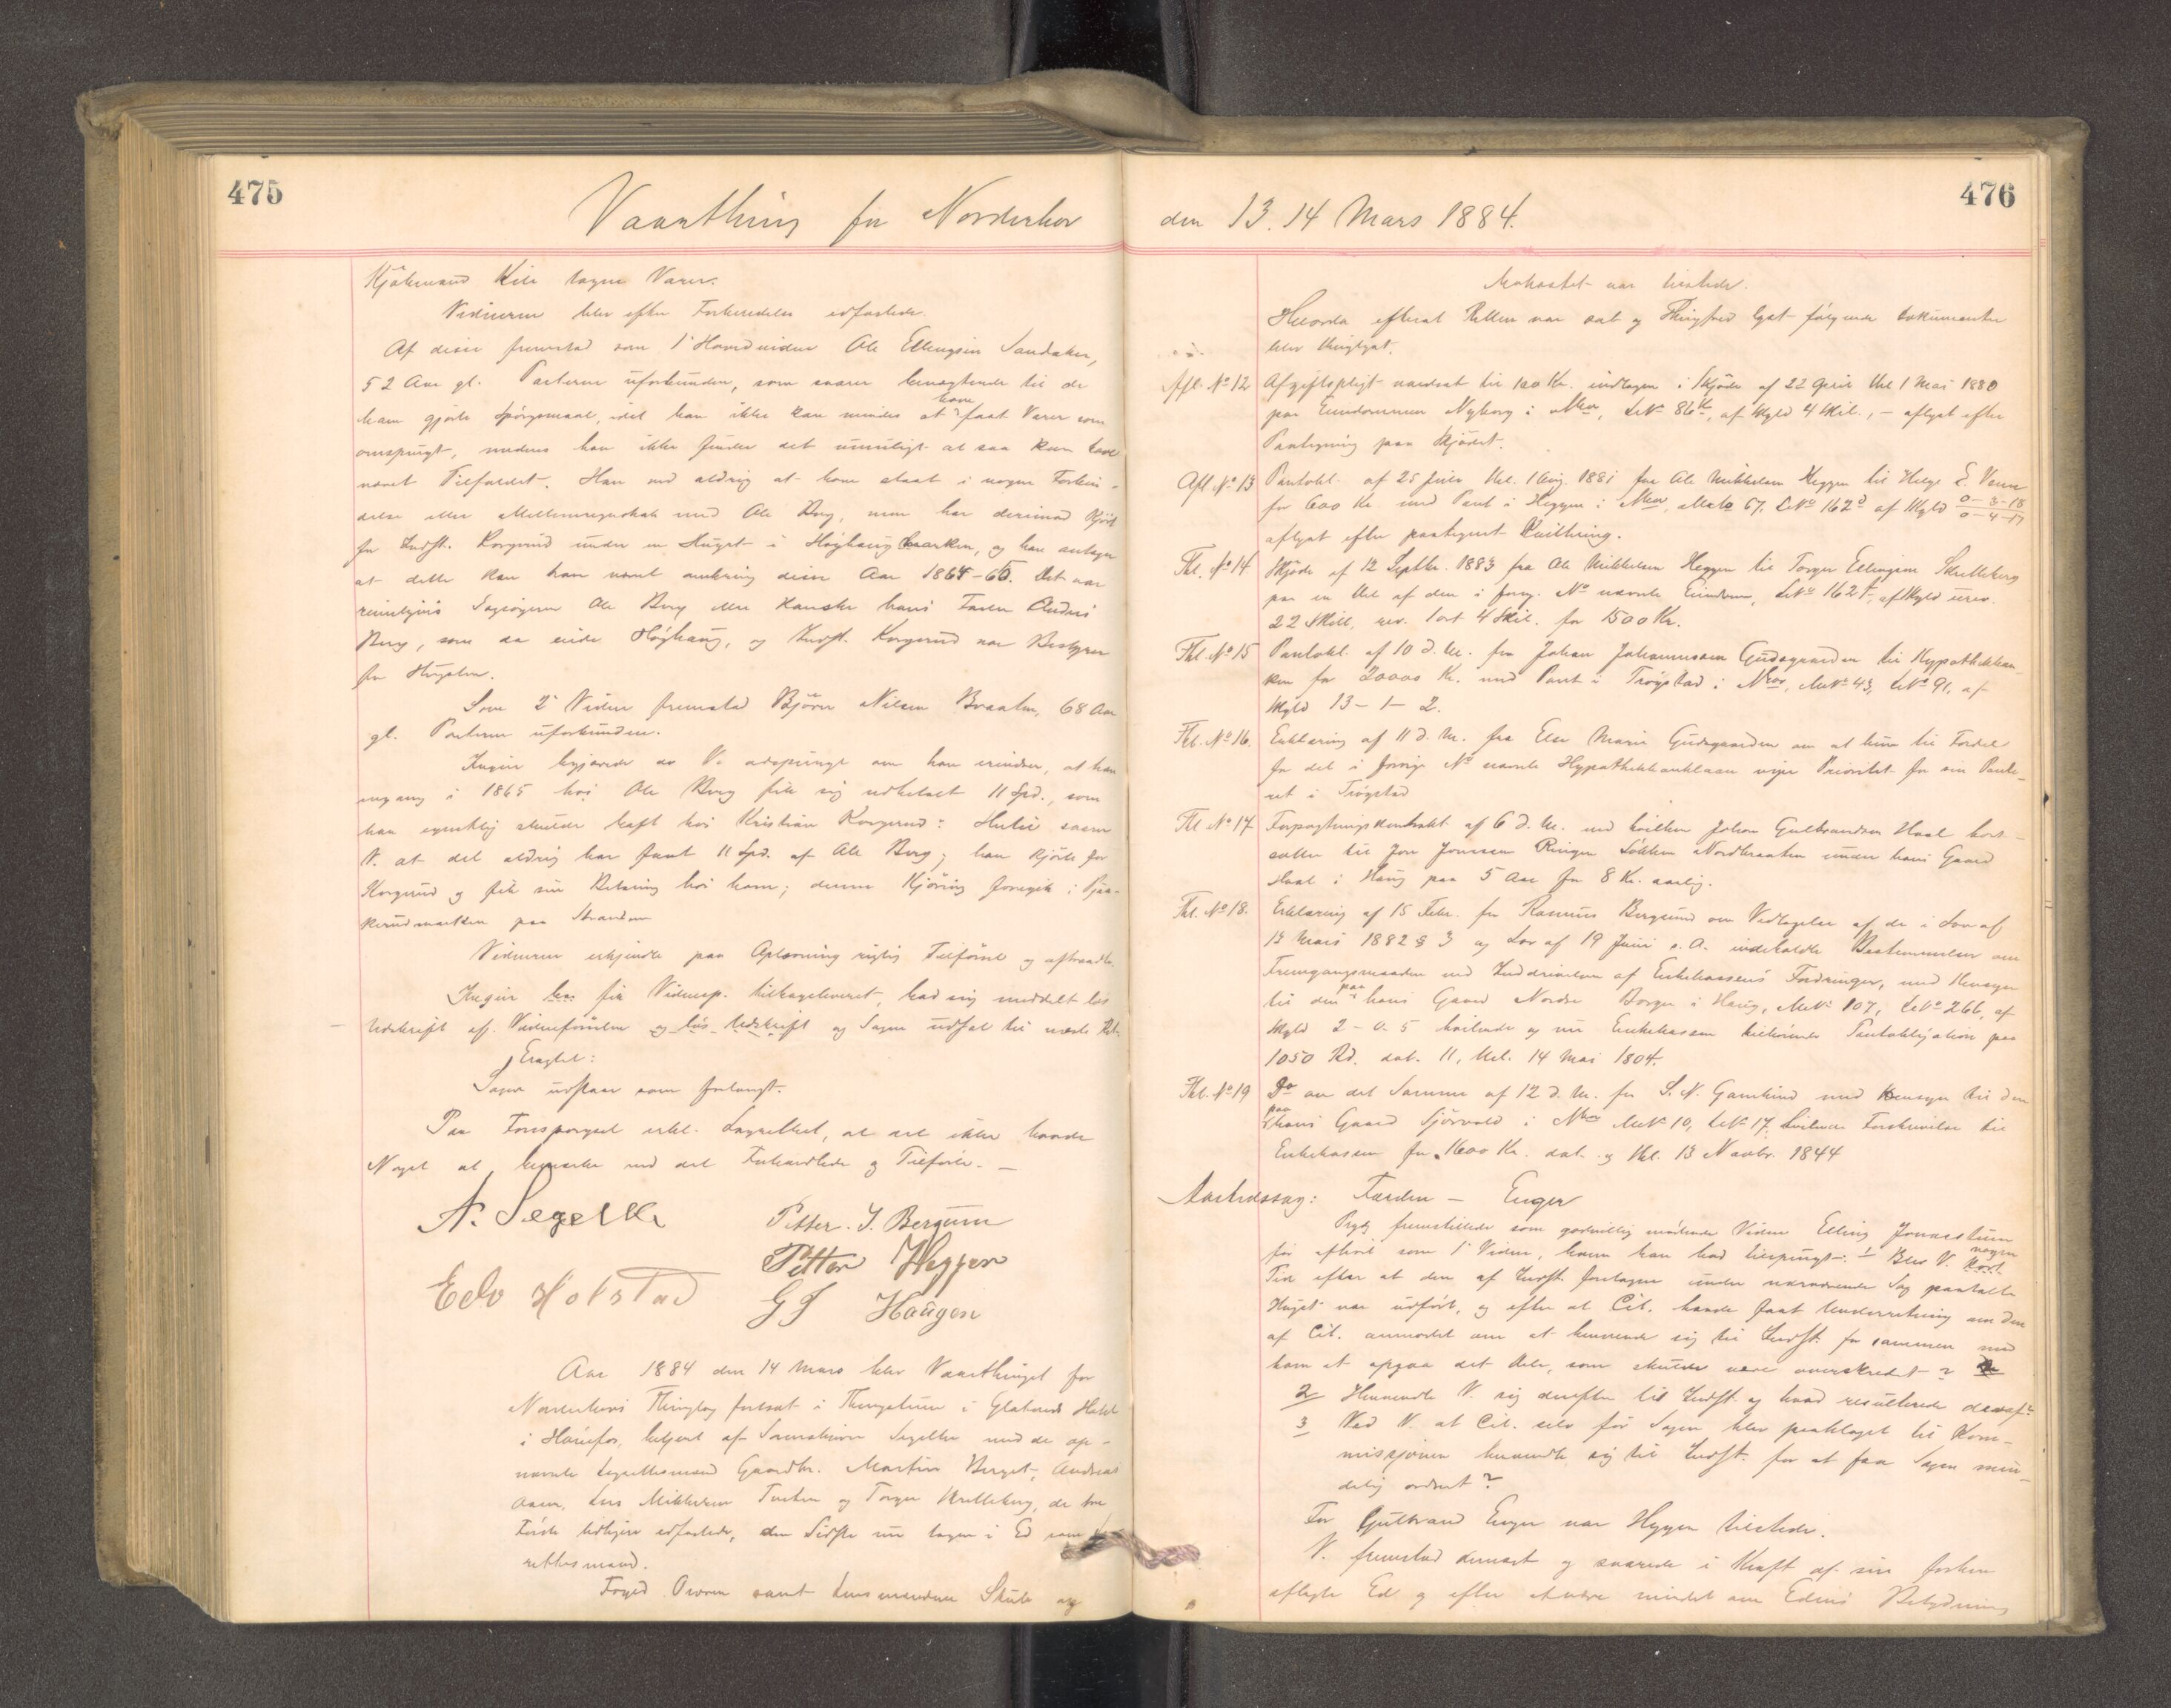 475
Vaarthing for Norderhov
Kjøbmand Kile tagne Varer.
Vidnerne blev efter Forberedelse edfæstede.
Af disse fremstod som 1ste Hovedvidne Ole Ellingsen Sandaker,
52 Aar gl. Parterne uforbunden, som svarer benægtende til de
ham gjorte Spørgsmaal, idet han ikke kan mindes at have faaet Varer som
omspurgt, medens han ikke finder det umuligt at saa kan have
været Tilfældet. Han ved aldrig at have staat i nogen Forbin-
delse eller Mellemregnskab med Ole Berg, men har derimod kjørt
for Indst. Korgerud under en Hugst i Høghaug marken, og han antager
at dette kan have været omkring disse Aar 1864-65. Det var
rimeligvis Sagsøgeren Ole Berg eller kanske hans Fader Anders
Berg, som da eiede Høghaug, og Indst. Korgerud var Bestyrer
for Hugsten.
Som 2det Vidne fremstod Björn Nilsen Braaten, 68 Aar
gl. Parterne uforbunden.
Ingier begjærede av V. adspurgt om han erindrer, at han
engang i 1865 hos Ole Berg fik sig udbetalt 11 Spd., som
han egentlig skulde havt hos Kristian Korgerud? Hertil svarer
V. at det aldrig har faaet 11 Spd. af Ole Berg; han kjørte for
Korgerud og fik sin Betaling hos ham; denne Kjøring foregik i Pjaa-
kerudmarken paa Stranden
Vidnerne erkjendte paa Oplæsning rigtig Tilført og aftraadte.
Ingier fik Vidnesp. tilbageleveret, bad sig meddelt løs
Udskrift af Vidneførselen og løs Udskrift og Sagen udsat til næste Ret.
Eragtet:
Sagen udstaar som forlangt.
Paa Forespørgsel erkl. Lagrettet, at det ikke havde
Noget at bemærke ved det Forhandlede og Tilførte. —
A. Segelcke
Petter. J. Bergum
Petter Heggen
Edv Holstad
G J Haugen
Aar 1884 den 14 Mars blev Vaarthinget for
Norderhovs Thinglag fortsat i Thingstuen i Glatveds Hotel
i Hønefos, betjent af Sorenskriver Segelcke med de op-
nævnte Lagrettesmænd Gaardbr. Martin Berget, Andreas
Aasen, Lars Mikkelsen Tveten og Torger Skrelleberg, de tre
Første tidligere edfæstede, den Sidste nu tagen i Ed som
rettesmand.
Foged Owren samt Lensmændene Skule og
476
den 13. 14 Mars 1884.
Mohrstet var tilstede.
Hvorda efterat Retten var sat og Thingfred lyst følgende Dokumenter
blev thinglyst.
Afl. No 12 Afgiftspligt værdsat til 100 Kr. indtagen i Skjøde af 22 April thl. 1 Mai 1880
paa Eiendommen Nyborg i Nhov, LNo 86k, af Skyld 4 Skil., — aflyst efter
Paategning paa Skjødet.
Afl. No 13 Pantobl. af 25 Juli thl. 1 Aug. 1881 fra Ole Mikkelsen Heggen til Helge E. Vaar
for 600 Kr. med Pant i Heggen i Nhov, MNo 67, LNo 162d af Skyld 0-3-18 0-4-17
aflyst efter paategnet Kvittering.
Thl. No 14 Skjøde af 12 Septbr. 1883 fra Ole Mikkelsen Heggen til Torger Ellingsen Skrelleberg
paa en Del af den i forrg. No nævnte Eiendom, LNo 162f, af Skyld urev.
22 Skill. rev. 1 ort 4 Skil. for 1500 Kr.
Thl. No 15 Pantobl. af 10 d. M. fra Johan Johannessen Gudsgaarden til Hypothekban-
ken for 20000 Kr. med Pant i Trøgstad i Nhov, MNo 43, LNo 91, af
Skyld 13-1-2.
Thl. No 16. Erklæring af 11 d. M. fra Else Marie Gudsgaarden om at hun til Fordel
for det i forrige No nævnte Hypothekbanklaan viger Prioritet for sin Pante-
ret i Trøgstad
Thl No 17 Forpagtningskontrakt af 6 d. M. ved hvilken Johan Gulbrandsen Hval bort-
sætter til Jon Jonssen Ringen Løkken Nordbraaten under hans Gaard
Hval i Haug paa 5 Aar for 8 Kr. aarlig.
Thl. No 18. Erklæring af 15 Febr. fra Rasmus Bergsund om Vedtagelse af de i Lov af
13 Mars 1882 § 3 og Lov af 19 Juni s. A. indeholdte Bestemmelser om
Fremgangsmaaden ved Inddrivelsen af Enkekassens Fordringer, med Hensyn
til den paa hans Gaard Nordre Berger i Haug, MNo 107, LNo 266, af
Skyld 2-0-5 hvilende og nu Enkekassen tilhørende Pantobligation paa
1050 Rd. dat. 11, thl. 14 Mai 1804.
Thl. No 19 Do om det Samme af 12 d. M. fra S. N. Gamkind med Hensyn til den
paa hans Gaard Sjörvold i Nhov MNo 10, LNo 17, hvilende Forskrivelse til
Enkekassen for 1600 Kr. dat. og thl. 13 Novbr. 1844
Aastedssag: Færden — Enger
Rygg fremstillede som godvillig mødende Vidne Elling Jonsestuen
for afhørt som 1ste Vidne, hvem han bad tilspurgt: 1 Blev V. nogen
Tid efter at den af Indst. foretagne under nærværende Sag paatalte
Hugst var udført, og efter at Cit. havde faaet Underretning om den
af Cit. anmodet om at henvende sig til Indst. for sammen med
ham at opgaa det Dele, som skulde være overskredet?
2 Henvendte V. sig derefter til Indst. og hvad resulterede deraf?
3 Ved V. at Cit. selv før Sagen blev paaklaget til Kom-
missjonen henvendte sig til Indst. for at faa Sagen min-
delig ordnet?
For Gulbrand Enger var Hygen tilstede.
V. fremstod dernæst og svarede i Kraft af sin forhen
aflagte Ed og efter at være mindet om Edens Betydning